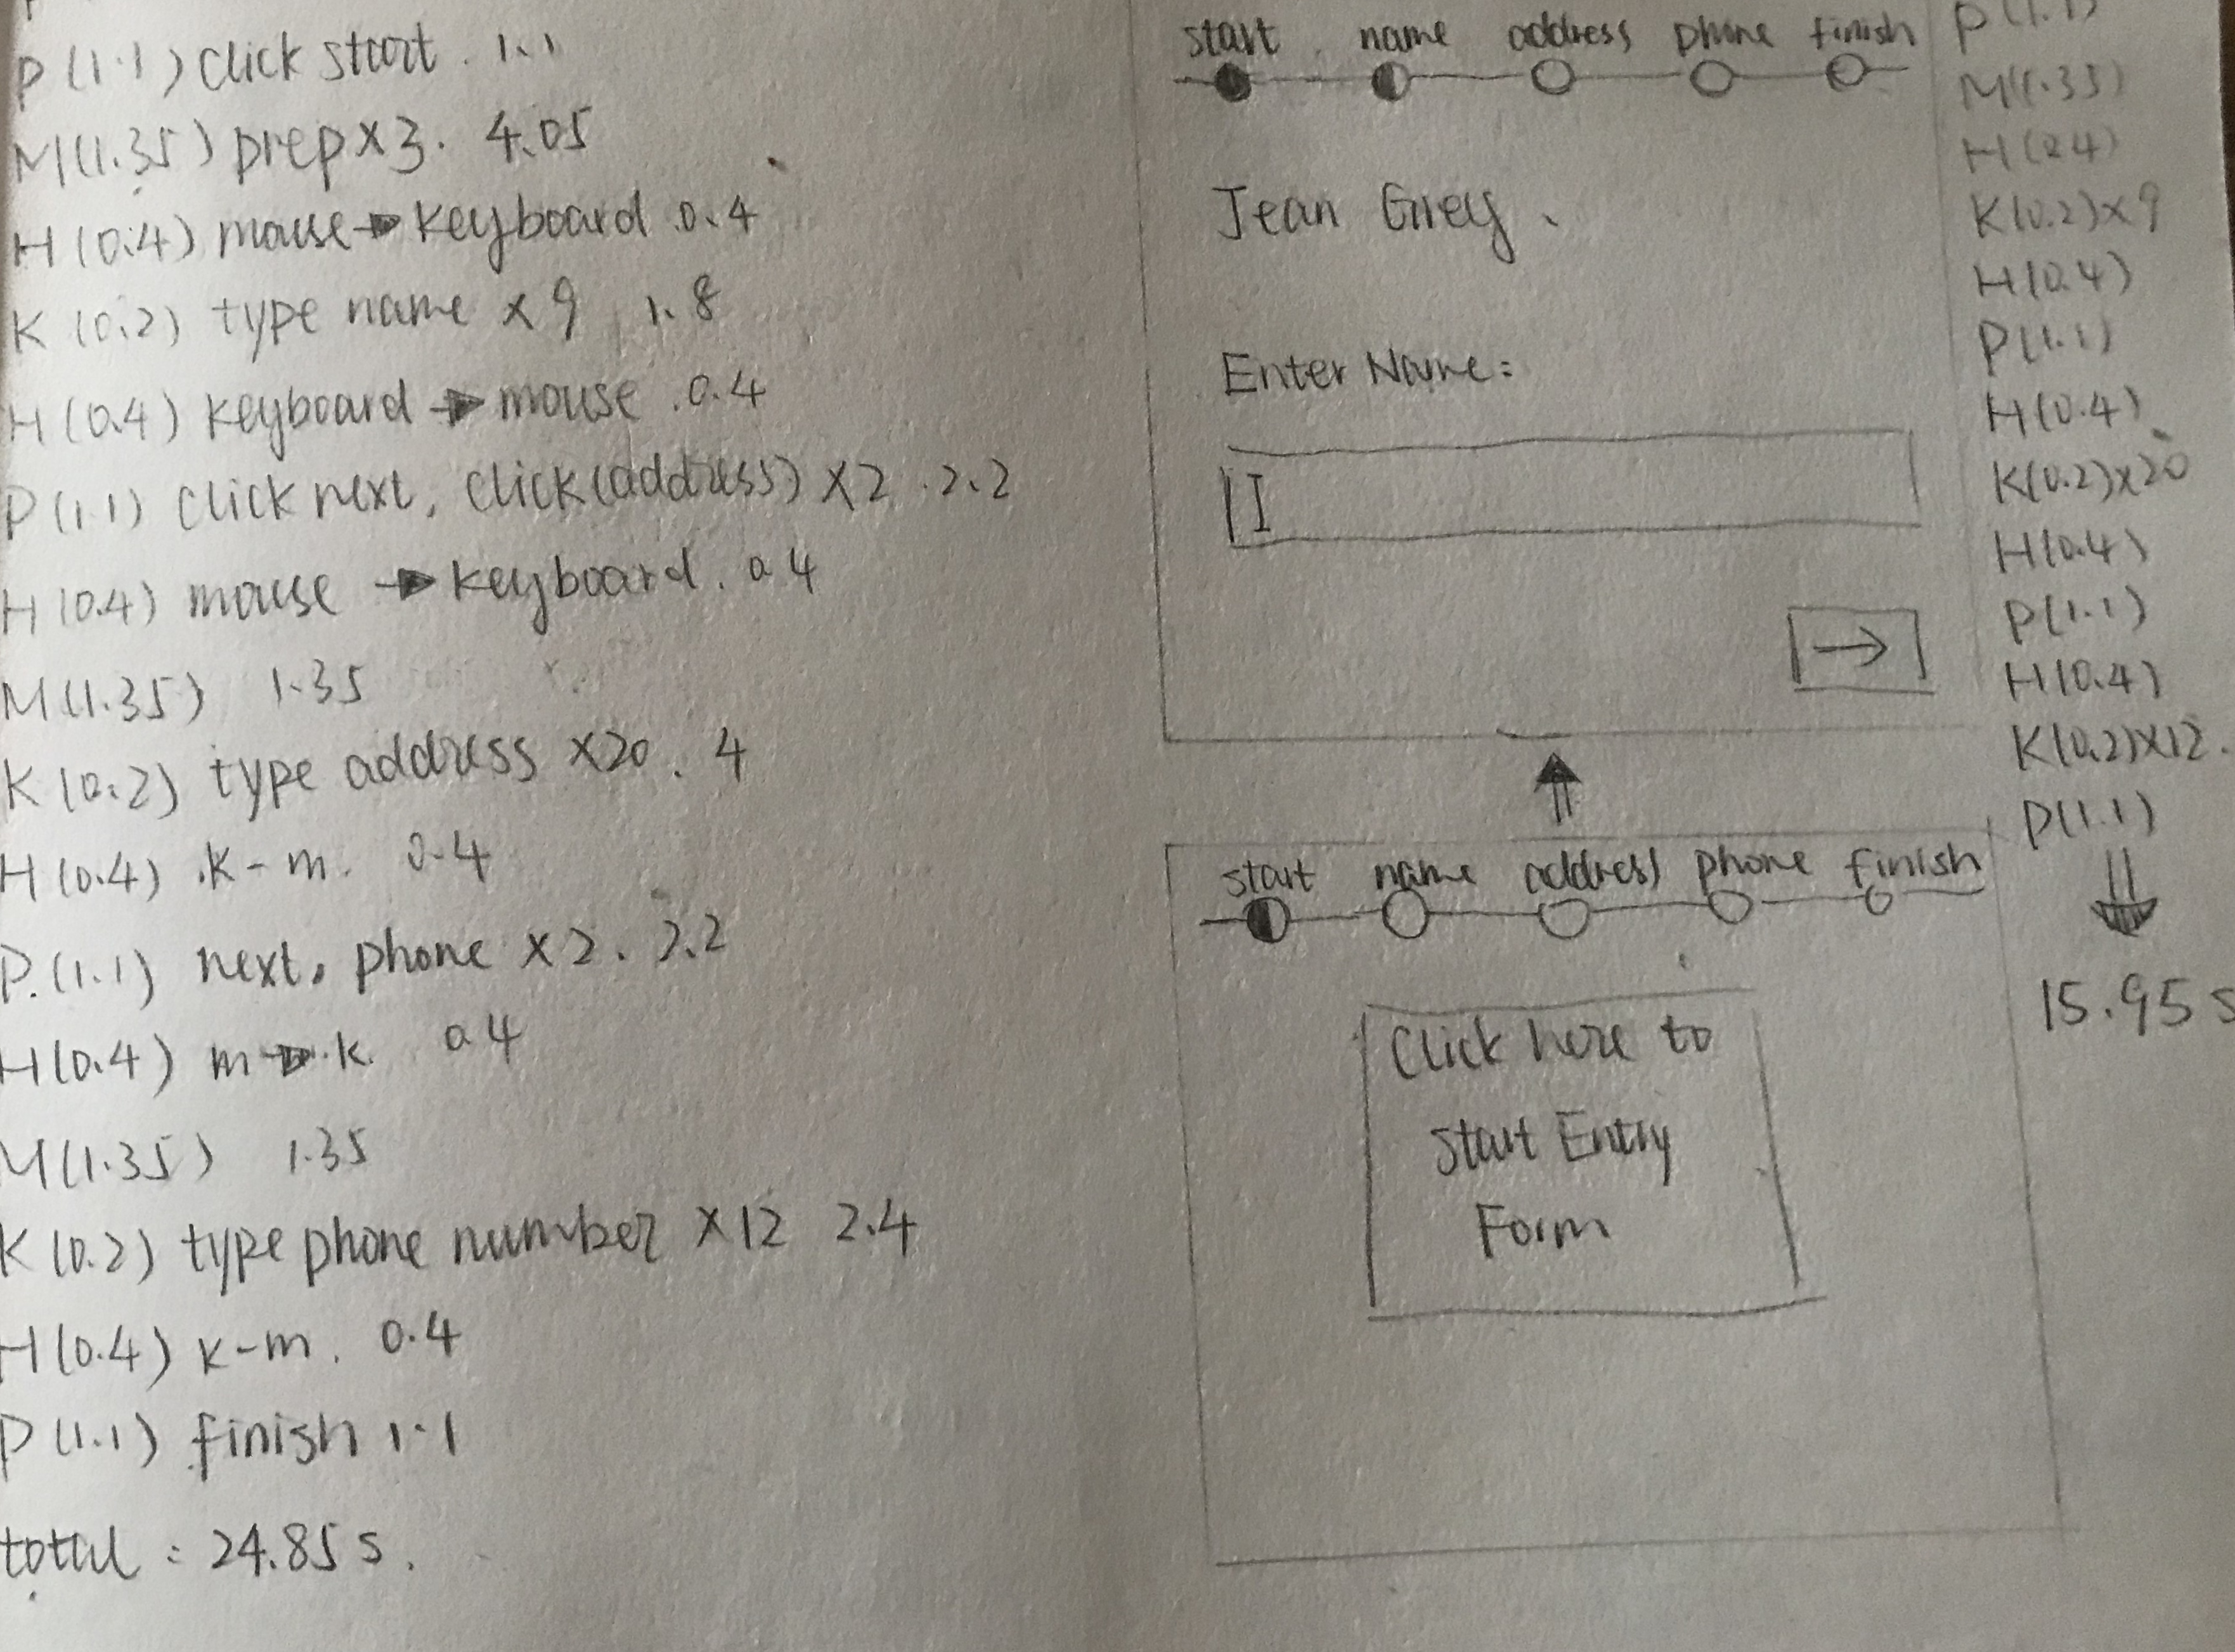 P (1.1) click start. 1.1
M(1.35) prep x3. 4.05
H (0.4) mouse → keyboard 0.4
K (0.2) type name x 9 1.8
H (0.4) keyboard → mouse .0.4
P (1.1) click next, click (address) x2 .2.2
H (0.4) mouse → keyboard. 0.4
M (1.35) 1.35
K (0.2) type address x20. 4
H (0.4) .K-m. 0.4
P. (1.1) next, phone x2. 2.2
H (0.4) m → k. 0.4
M(1.35) 1.35
K (0.2) type phone number x12 2.4
H (0.4) K-m. 0.4
P (1.1) finish 1.1
total : 24.85 s.
start name address phone finish
Jean Grey
Enter Name:
I
→
start name address phone finish
Click here to
Start Entry
Form
P (1.1)
M(1.35)
H (0.4)
K(0.2)x9
H(0.4)
P(1.1)
H(0.4)
K(0.2)x20
H(0.4)
P(1.1)
H(0.4)
K(0.2)x12.
P(1.1)
15.95 s